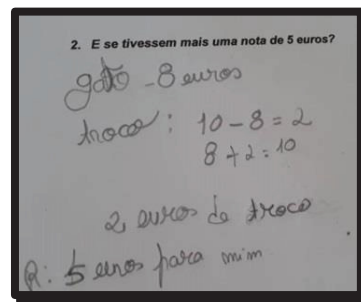 2. E se tivessem mais uma nota de 5 euros?
gato - 8 euros
troco: 10 - 8 = 2
8 + 2 = 10
2 euros de troco
R: 5 euros para mim